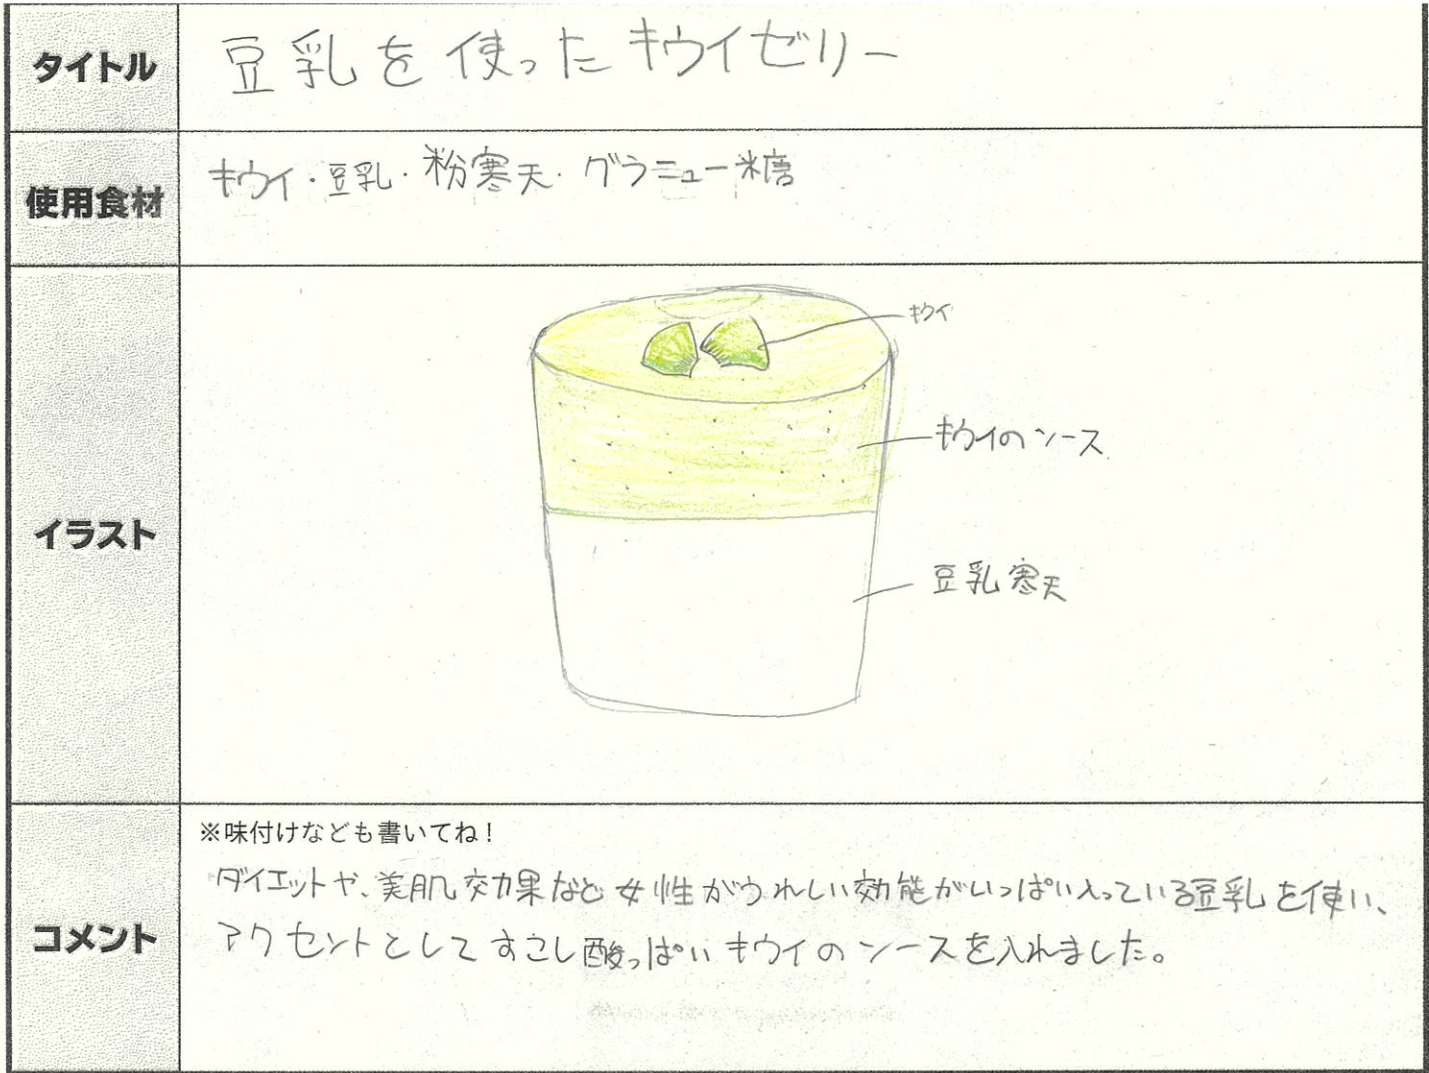 タイトル
豆乳を使ったキウイゼリー
使用食材
キウイ・豆乳・粉寒天・グラニュー糖
イラスト
キウイ
キウイのソース
豆乳寒天
コメント
※味付けなども書いてね！
ダイエットや、美肌効果など女性がうれしい効能がいっぱい入っている豆乳を使い、
アクセントとしてすこし酸っぱいキウイのソースを入れました。